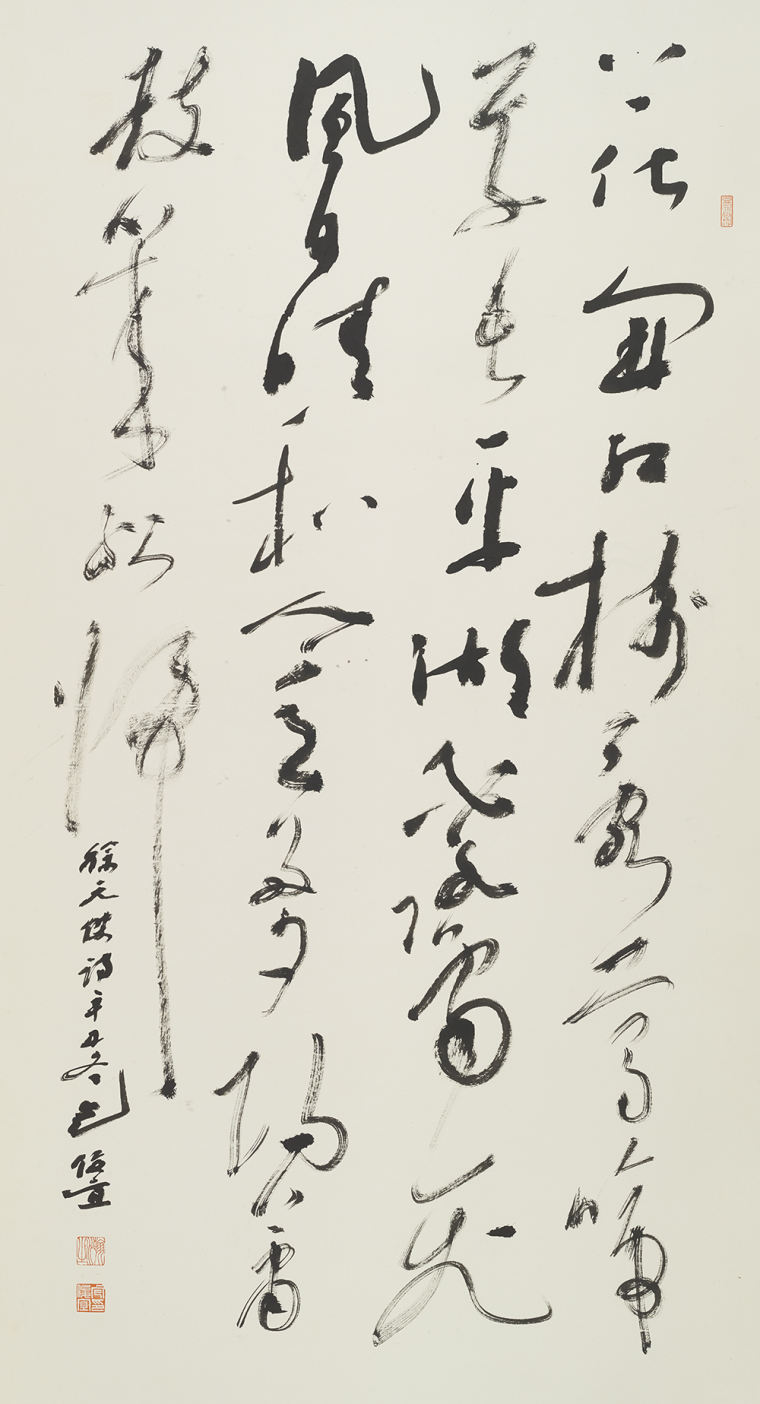 花開紅樹亂鶯啼
草長平湖白鷺飛
風日晴和人意好夕陽簫
鼓幾船歸
徐元杰詩辛丑冬